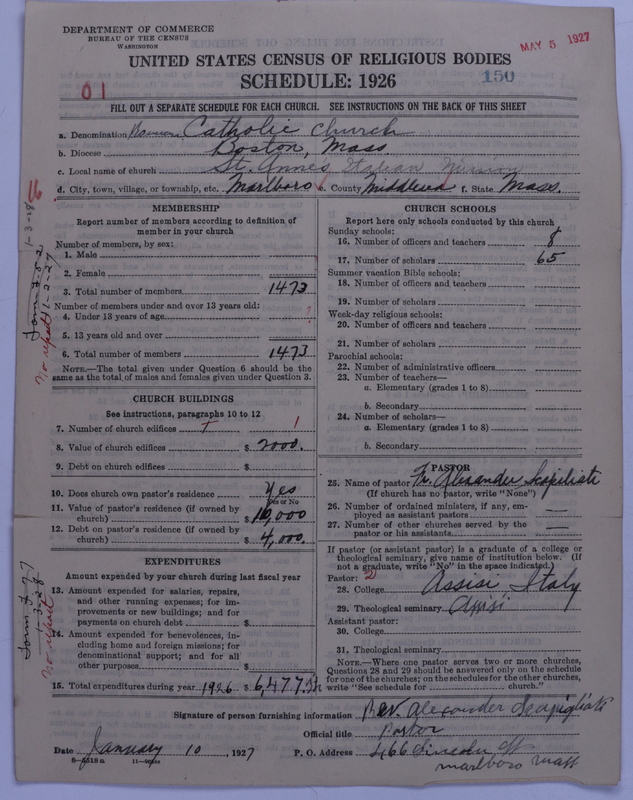 DEPARTMENT OF COMMERCE
BUREAU OF THE CENSUS
WASHINGTON
MAY 5 1927
UNITED STATES CENSUS OF RELIGIOUS BODIES
SCHEDULE: 1926
150
01
FILL OUT A SEPARATE SCHEDULE FOR EACH CHURCH. SEE INSTRUCTIONS ON THE BACK OF THIS SHEET
a. Denomination Roman Catholic Church
b. Diocese Boston, Mass
c. Local name of church St. Anne's Italian
d. City, town, village, or township, etc. Marlboro e. County Middlesex f. State Mass.
MEMBERSHIP
Report number of members according to definition of member in your church
Number of members, by sex:
1. Male
2. Female
3. Total number of members 1473
Number of members under and over 13 years old:
4. Under 13 years of age ?
5. 13 years old and over
6. Total number of members 1473
NOTE.—The total given under Question 6 should be same as the total of males and females given under Question 3.
CHURCH BUILDINGS
See instructions, paragraphs 10 to 12
7. Number of church edifices 1
8. Value of church edifices $ 2000.
9. Debt on church edifices $
10. Does church own pastor's residence Yes
Yes or No
11. Value of pastor's residence (if owned by church) $ 10,000
12. Debt on pastor's residence (if owned by church) $ 4,000.
EXPENDITURES
Amount expended by your church during last fiscal year
13. Amount expended for salaries, repairs, and other running expenses; for improvements or new buildings; and for payments on church debt $
14. Amount expended for benevolences, including home and foreign missions; for denominational support; and for all other purposes $
15. Total expenditures during year 1926 $ 6,477
CHURCH SCHOOLS
Report here only schools conducted by this church
Sunday schools:
16. Number of officers and teachers 8
17. Number of scholars 65
Summer vacation Bible schools:
18. Number of officers and teachers
19. Number of scholars
Week-day religious schools:
20. Number of officers and teachers
21. Number of scholars
Parochial schools:
22. Number of administrative officers
23. Number of teachers—
a. Elementary (grades 1 to 8)
b. Secondary
24. Number of scholars—
a. Elementary (grades 1 to 8)
b. Secondary
PASTOR
25. Name of pastor Fr. Alexander
(If church has no pastor, write "None")
26. Number of ordained ministers, if any, employed as assistant pastors —
27. Number of other churches served by the pastor or his assistants —
If pastor (or assistant pastor) is a graduate of a college or theological seminary, give name of institution below. (If not a graduate, write "No" in the space indicated.)
Pastor: 2
28. College Assisi, Italy
29. Theological seminary Assisi
Assistant pastor:
30. College
31. Theological seminary
NOTE.—Where one pastor serves two or more churches, Questions 28 and 29 should be answered only on the schedule for one of the churches; on the schedules for the other churches, write "See schedule for church."
Signature of person furnishing information Rev. Alexander
Official title Pastor
Date January 10, 1927 P. O. Address 466 Lincoln St
Marlboro Mass
8—5518 a
No report 1-2-27
1-3-28
No report